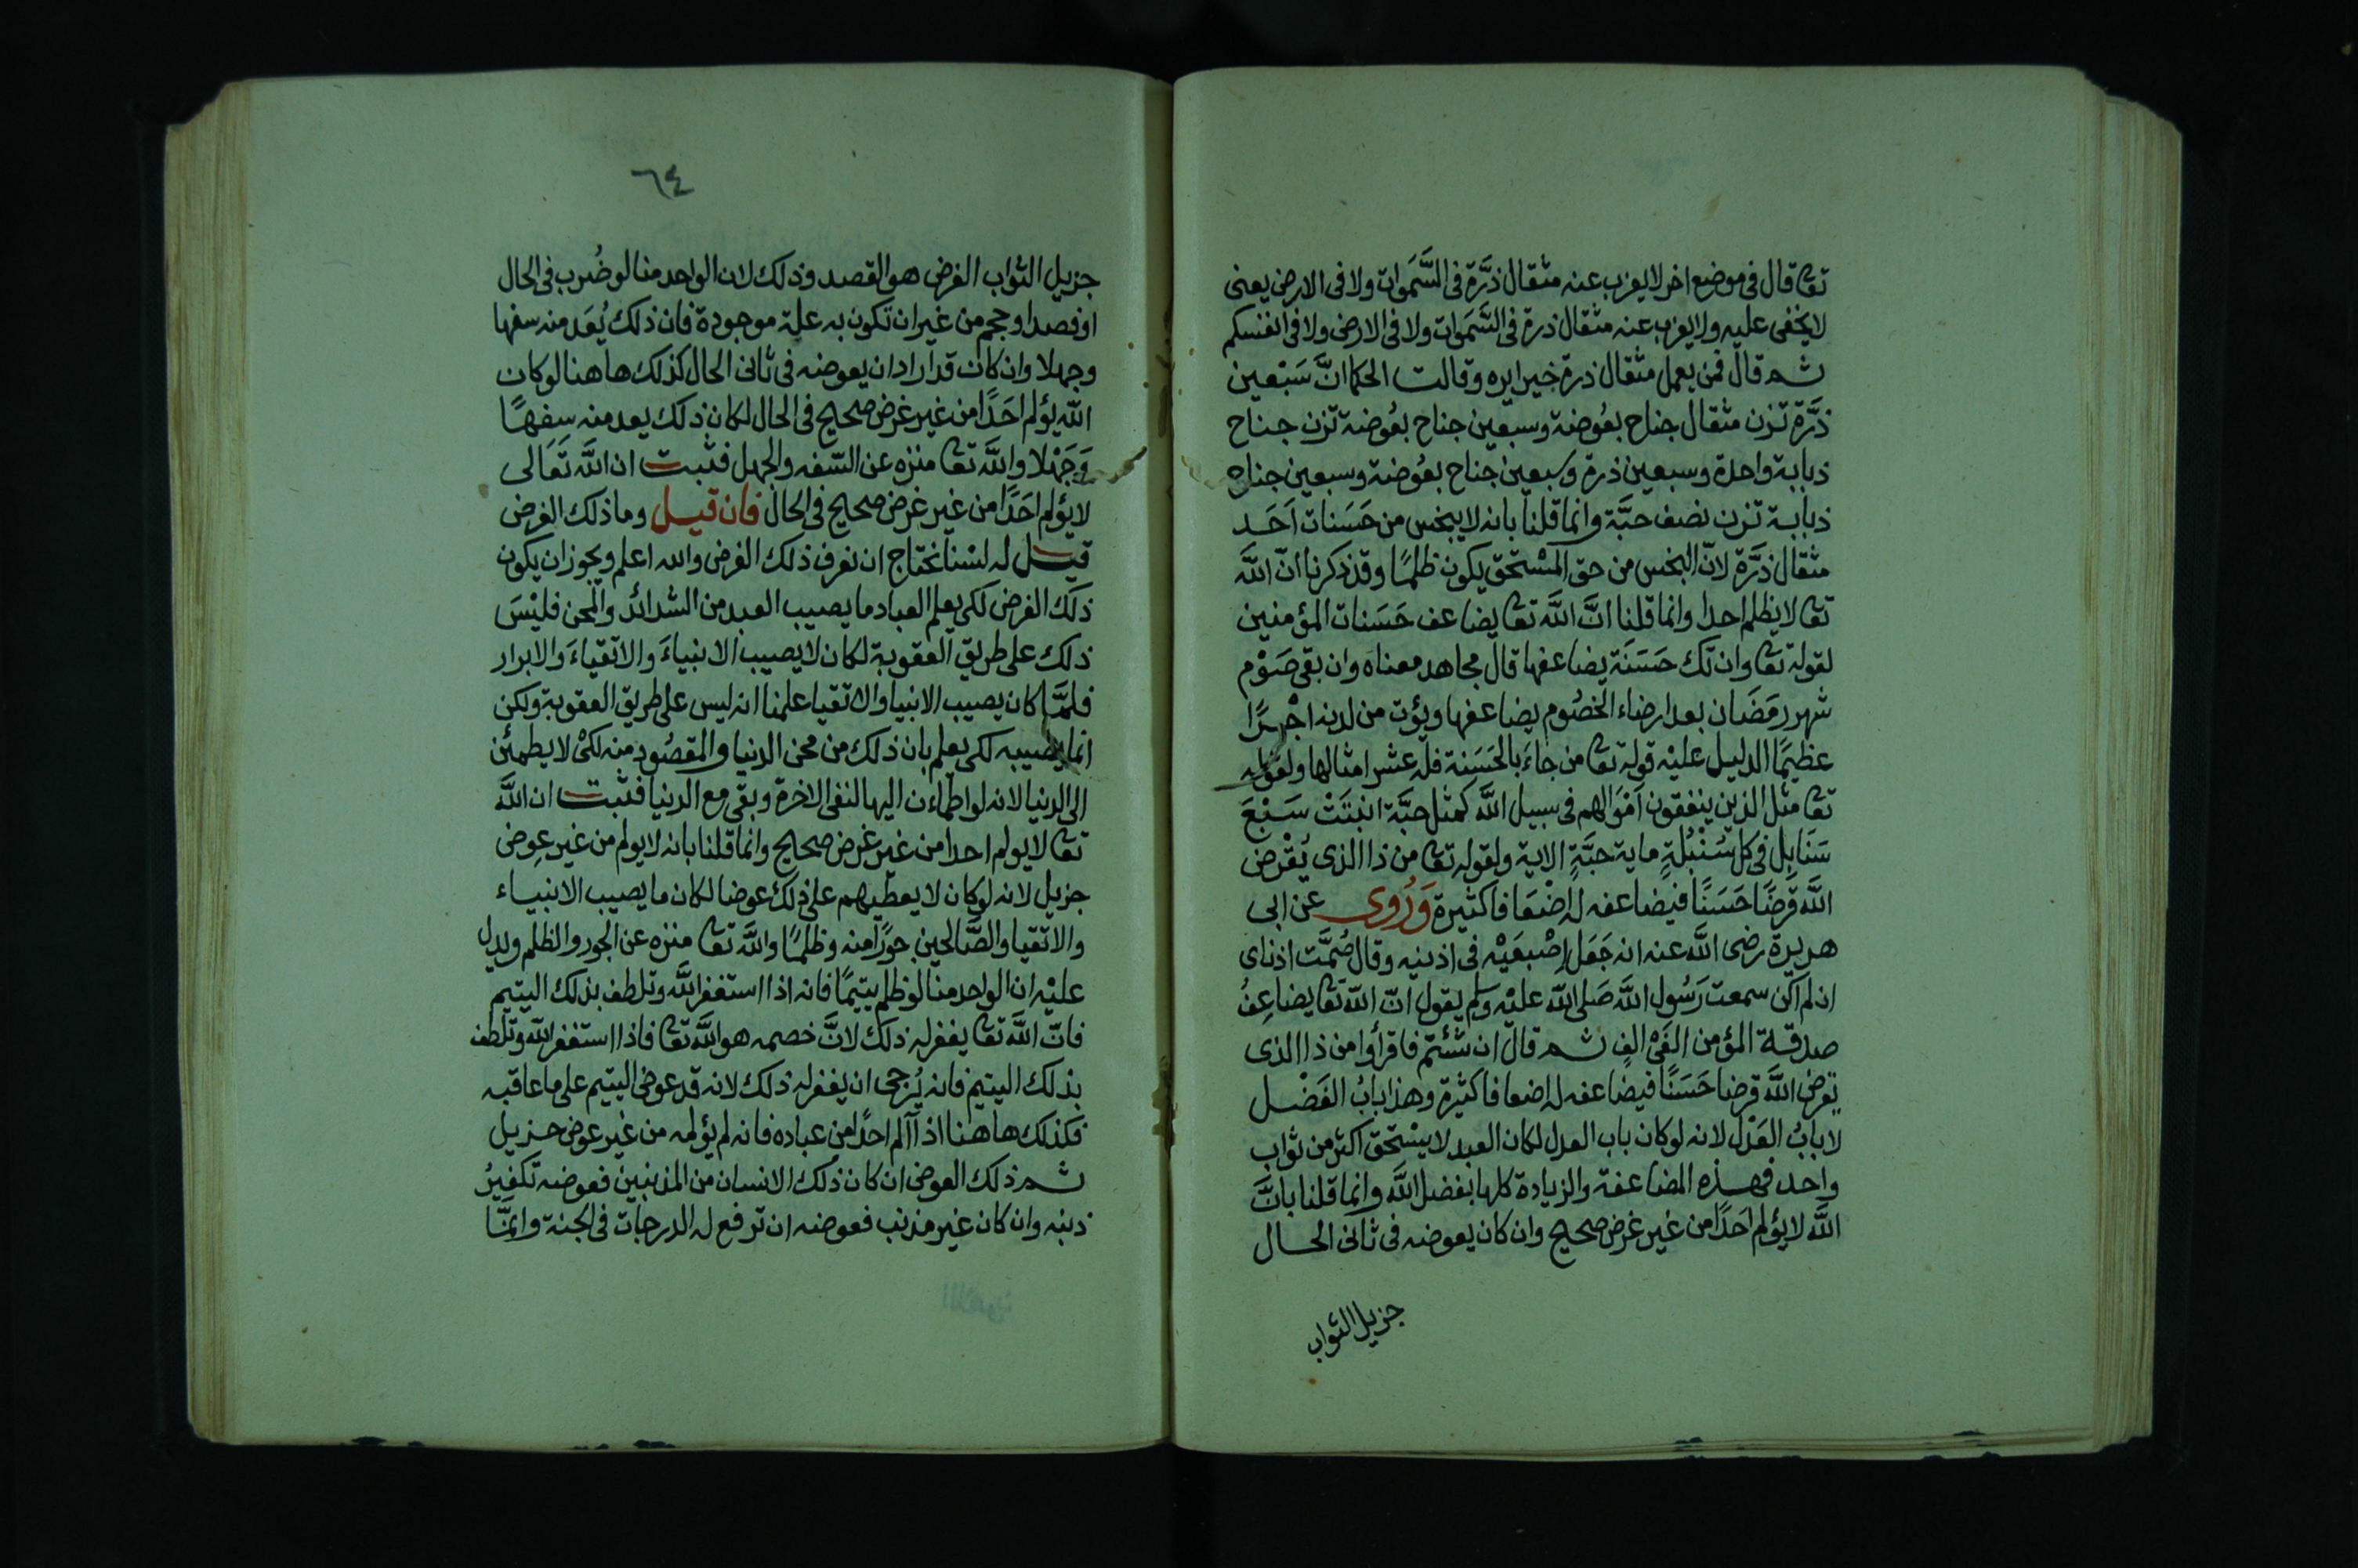 تعا قال في موضع اخر لا يعزب عنه مثقال ذرَّة في السَّمَوات ولا في الارض يعني
لا يخفى عليه ولا يعزب عنه مثقال ذرة في السَّمَوات ولا في الارض ولا في انفسكم
ثم قال فمن يعمل مثقال ذرة خيرا يره وقالت الحكما انَّ سَبْعين
ذرَّة تزن مثقال جناح بعُوضة وسبعين جناح بعُوضة تزن جناح
ذبابة واحدة وسبعين ذرة وسبعين جناح بعُوضة وسبعين جناح
ذبابة تزن نصف حبَّة وانما قلنا بانه لا يبخس من حَسَنات اَحَد
مثقال ذرَّة لانّ البخس من حق المسْتحق يكون ظلمًا وقد ذكرنا انّ اللَّه
تعا لا يظلم احدا وانما قلنا انَّ اللَّه تعا يضاعف حَسَنات المؤمنين
لقوله تعا وان تك حَسَنَة يضاعفها قال مجاهد معناه وان بقي صَوْم
شهر رمَضَان بعد ارضاء الخصُوم يضاعفها ويؤت من لدنه اجْرًا
عظيمًا الدليل عليْه قوله تعا من جاءَ بالحَسَنة فله عشر امثالها ولقوله
تعا مثل الذين ينفقون اَمْوَالهم في سبيل اللَّه كمثل حبَّة انبتَتْ سَبْعَ
سَنَابِل في كل سُنْبُلَةٍ ماية حبَّةٍ الاية ولقوله تعا من ذا الذي يُقْرض
اللَّه قرضًا حَسَنًا فيضاعفه له اضْعَافا كثيرة وَرُوى عن ابي
هريرة رضي اللَّه عنه انه جَعَل اِصْبعَيْه في اذنيه وقال صُمَّت اذناى
ان لم اكن سمعت رَسُول اللَّه صَلى اللَّه عليْه وسلم يقول انّ اللَّه تعا يضاعِفُ
صدقة المؤمن الفَيْ الفٍ ثم قال ان شئتم فاقرأوا من ذا الذي
يقرض اللَّه قرضا حَسَنًا فيضاعفه له اضعافا كثيرة وهذا بابُ الفَضْل
لا بابُ العَدْل لانه لو كان باب العدل لكان العبد لا يسْتحق اكثر من ثواب
واحد فهذه المضاعفة والزيادة كلها بفضل اللَّه وانما قلنا بانَّ
اللَّه لا يؤلم اَحَدًا من غير غرض صحيح وان كان يعوضه في ثاني الحال
جزيل الثواب
٦٤
جزيل الثواب الغرض هو القصد وذلك لان الواحد منا لو ضُرب في الحال
او فصد او حجم من غير ان تكون به علة موجودة فان ذلك يُعَد منه سفها
وجهلا وان كان قد اراد ان يعوضه في ثاني الحال كذلك هاهنا لو كان
اللَّه يؤلم احَدًا من غير غرض صحيح في الحال لكان ذلك يعد منه سفهًا
وَجَهْلا واللَّه تعا منزه عن السّفه والجهل فثبت ان اللَّه تَعَالى
لا يؤلم احَدًا من غير غرض صحيح في الحال فان قيل وما ذلك الغرض
قيل له لسْنا نحتاج ان نعرف ذلك الغرض والله اعلم ويجوز ان يكون
ذلك الغرض لكي يعلم العباد ما يصيب العبد من الشدائد والمحن فليْسَ
ذلك على طريق العقوبة لكان لا يصيب الانبياءَ والاتقياءَ والابرار
فلمَّا كان يصيب الانبيا والاتقيا علمنا انه ليس على طريق العقوبة ولكن
انما يصيبه لكي يعلم بان ذلك من محن الدنيا والمقصُود منه لكىْ لا يطمئن
الى الدنيا لانه لو اطمأن اليها لنفى الاخرة وبقي مع الدنيا فثبت ان اللَّه
تعا لا يولم احدا من غير غرض صحيح وانما قلنا بانه لا يولم من غير عِوض
جزيل لانه لو كان لا يعطيهم على ذلك عوضا لكان ما يصيب الانبياء
والاتقيا والصَّالحين جورًا منه وظلمًا واللَّه تعا منزه عن الجور والظلم ويدل
عليْه ان الواحد منا لو ظلم يتيمًا فانه اذا استغفر اللَّه وتلطف بذلك اليتيم
فانّ اللَّه تعا يغفر له ذلك لانَّ خصمه هو اللَّه تعا فاذا استغفر اللَّه وتلطف
بذلك اليتيم فانه يُرجى ان يغفر له ذلك لانه قد عوض اليتيم على ما عاقبه
فكذلك هاهنا اذا آلم احدًا من عباده فانه لم يؤلمه من غير عوض جزيل
ثم ذلك العوض ان كان ذلك الانسان من المذنبين فعوضه تكفيرُ
ذنبه وان كان غير مذنب فعوضه ان ترفع له الدرجات في الجنة وانمَّا